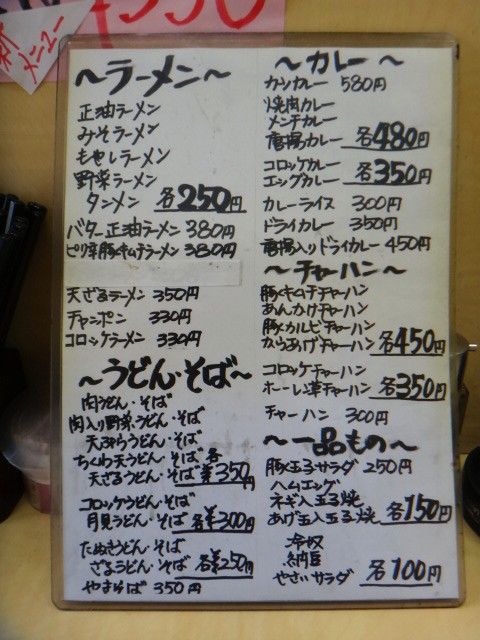 ¥550
新
メニュー
〜ラーメン〜
正油ラーメン
みそラーメン
もやしラーメン
野菜ラーメン
タンメン 各250円
バター正油ラーメン380円
ピリ辛豚キムチラーメン380円
天ざるラーメン 350円
チャンポン 330円
コロッケラーメン 330円
〜うどん・そば〜
肉うどん・そば
肉入り野菜うどん・そば
天ぷらうどん・そば
ちくわ天うどん・そば 各
天ざるうどん・そば ¥350円
コロッケうどん・そば
月見うどん・そば 各¥300円
たぬきうどん・そば
ざるうどん・そば 各¥250円
やきそば 350円
〜カレー〜
カツカレー 580円
焼肉カレー
メンチカレー
唐揚カレー 各480円
コロッケカレー
エッグカレー 各350円
カレーライス 300円
ドライカレー 350円
唐揚入りドライカレー 450円
〜チャーハン〜
豚キムチチャーハン
あんかけチャーハン
豚カルビチャーハン
からあげチャーハン 各450円
コロッケチャーハン
ホーレン草チャーハン 各350円
チャーハン 300円
〜一品もの〜
豚玉子サラダ 250円
ハムエッグ
ネギ入玉子焼
あげ玉入玉子焼 各150円
冷奴
納豆
やさいサラダ 各100円